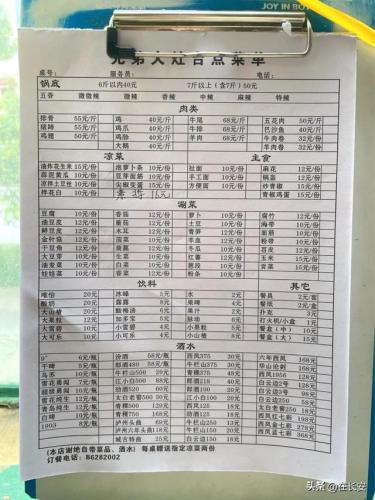 JOY IN BO
兄弟大灶台点菜单
座号： 服务员： 电话：
锅底 6斤以内40元 7斤以上（含7斤）50元
五香 微微辣 微辣 香辣 中辣 麻辣 特辣
肉类
排骨 55元/斤 鸡 40元/斤 牛尾 68元/斤 五花肉 50元/斤
猪蹄 55元/斤 鸡爪 40元/斤 牛排 68元/斤 巴沙鱼 40元/斤
鸡翅 55元/斤 鸭 40元/斤 羊肉 68元/斤 牛肉卷 32元/份
大鹅 40元/斤 羊肉卷 32元/份
凉菜 主食
油炸花生米 15元/份 泡萝卜条 10元/份 扯面 10元/份 麻花 12元/份
蒜泥黄瓜 10元/份 豆芽面筋 10元/份 手工面 10元/份 锅盔 12元/份
凉拌土豆丝 10元/份 尖椒变蛋 15元/份 方便面 10元/份 炒青椒 15元/份
拌花白 10元/份 素拼 16元 青椒鸡蛋 15元/份
涮菜
豆腐 10元/份 香菇 12元/份 萝卜 10元/份 腐竹 12元/份
油豆皮 12元/份 董菜 12元/份 土豆 10元/份 海带 10元/份
鲜豆皮 12元/份 木耳 12元/份 青笋 12元/份 面筋 10元/份
金针菇 12元/份 菠菜 10元/份 羊血 12元/份 粉带 10元/份
干豆角 12元/份 茴菜 10元/份 冬瓜 10元/份 苕皮 12元/份
大豆芽 10元/份 生菜 10元/份 红薯 12元/份 玉米 12元/份
油麦菜 10元/份 白菜 10元/份 芋头 15元/份 贡菜 10元/份
娃娃菜 10元/份 花菜 10元/份 粉条 10元/份
饮料 其它
唯怡 20元 冰峰 5元 水 2元 餐具 2元/套
酸奶 20元 露露 8元 啤 4元 餐纸 2元/盒
大山楂 20元 酸梅汤 6元 果汁 2元 扑克 3元
大果粒 12元 加多宝 5元 脉动 6元 打火机/小盒 1元
大雪碧 10元 小雪碧 4元 小茶 5元 餐盒（中） 15元
大可乐 10元 小可乐 4元 小山楂 8元 餐盒（大） 15元
酒水
9° 6元/瓶 汾酒 58元/瓶 西凤375 30元 六年西凤 168元
干啤 5元/瓶 郎酒480 58元 牛栏山500 20元 华山论剑 168元
乌苏 10元/瓶 江小白500 88元 牛栏山250 10元 西凤1956 128元
雪花勇闯 7元/瓶 江小白100 25元 牛栏山125 8元 白云边2号 128元
超级勇闯 10元/瓶 劲酒520 60元 太白500 20元 白云边3号 100元
雪花纯生 12元/瓶 太白老窖500 35元 太白250 10元 白云边250 58元
青岛纯生 12元/瓶 青稞500 128元 郎酒250 28元 太白老窖250 50元
白啤 10元/瓶 青稞750 168元 西凤125 18元 西凤红七彩 168元
1903 8元/瓶 泸州头曲 68元 西凤250 25元 西凤金七彩 168元
泸州六年头曲 118元 劲酒125 15元 西凤蓝七彩 398元
城古特曲 25元 白云边125 18元
(本店谢绝自带菜品、酒水) 每桌赠送指定凉菜两份
订餐电话：86282002
头条 @在长安